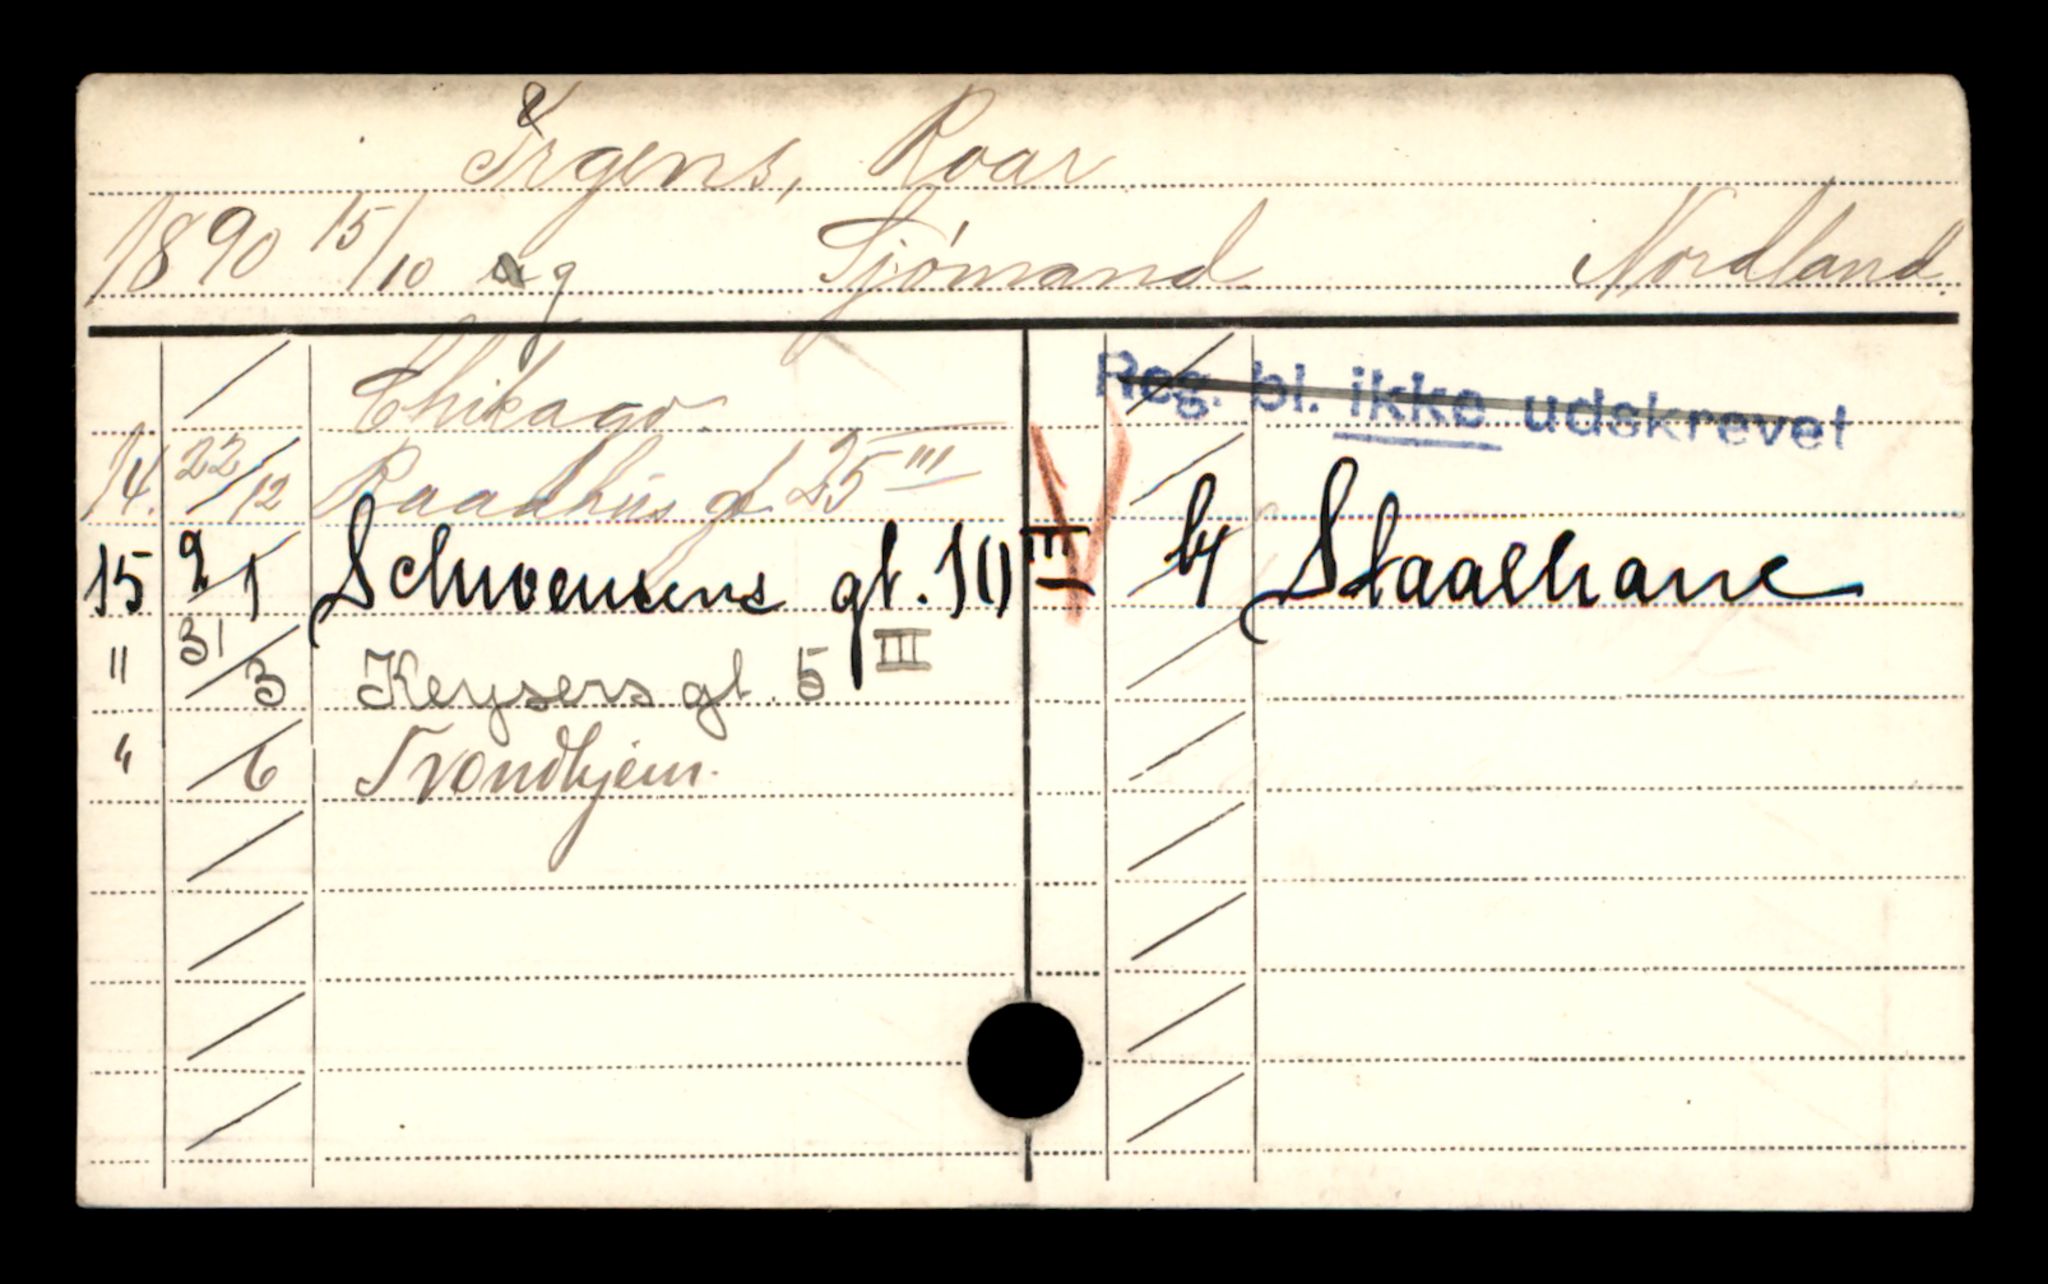 Irgens, Roar
1890 15/10 ug Sjömand Nordland.
Chikago.
Reg. bl. ikke udskrevet
14. 22/12 Raadhus gt 25 III
15 2/1 Schwensens gt. 10 III b/ Staalhane
" 31/3 Keysers gt. 5 III
" /6 Trondhjem.